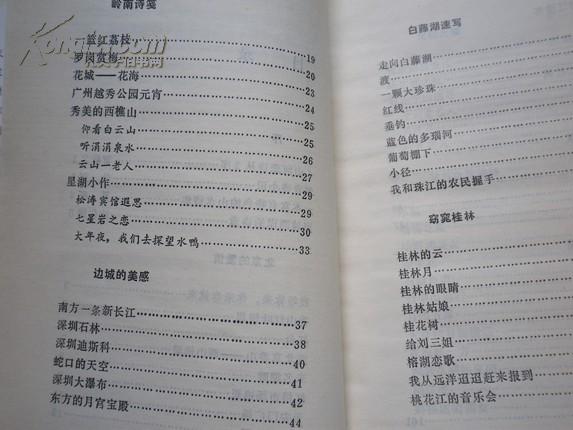 岭南诗笺
蓝红荔枝 19
罗岗赏梅 20
花城——花海 23
广州越秀公园元宵 24
秀美的西樵山 25
仰看白云山 25
听涓涓泉水 26
云山一老人 27
星湖小作 29
松涛宾馆遐思 29
七星岩之恋 30
大年夜，我们去探望水鸭 33
边城的美感
南方一条新长江 37
深圳石林 38
深圳迪斯科 40
蛇口的天空 41
深圳大瀑布 42
东方的月宫宝殿 44
白藤湖速写
走向白藤湖
波
一颗大珍珠
红线
垂钓
蓝色的多瑙河
葡萄棚下
小径
我和珠江的农民握手
窈窕桂林
桂林的云
桂林月
桂林的眼睛
桂林姑娘
桂花树
给刘三姐
榕湖恋歌
我从远洋迢迢赶来报到
桃花江的音乐会